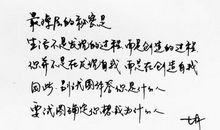 最深层的秘密是
生活不是发现的过程 而是创造的过程
你并不是在发现自我 而是在创造自我
因此 别试图弄清你是什么人
要试图确定你想成为什么人